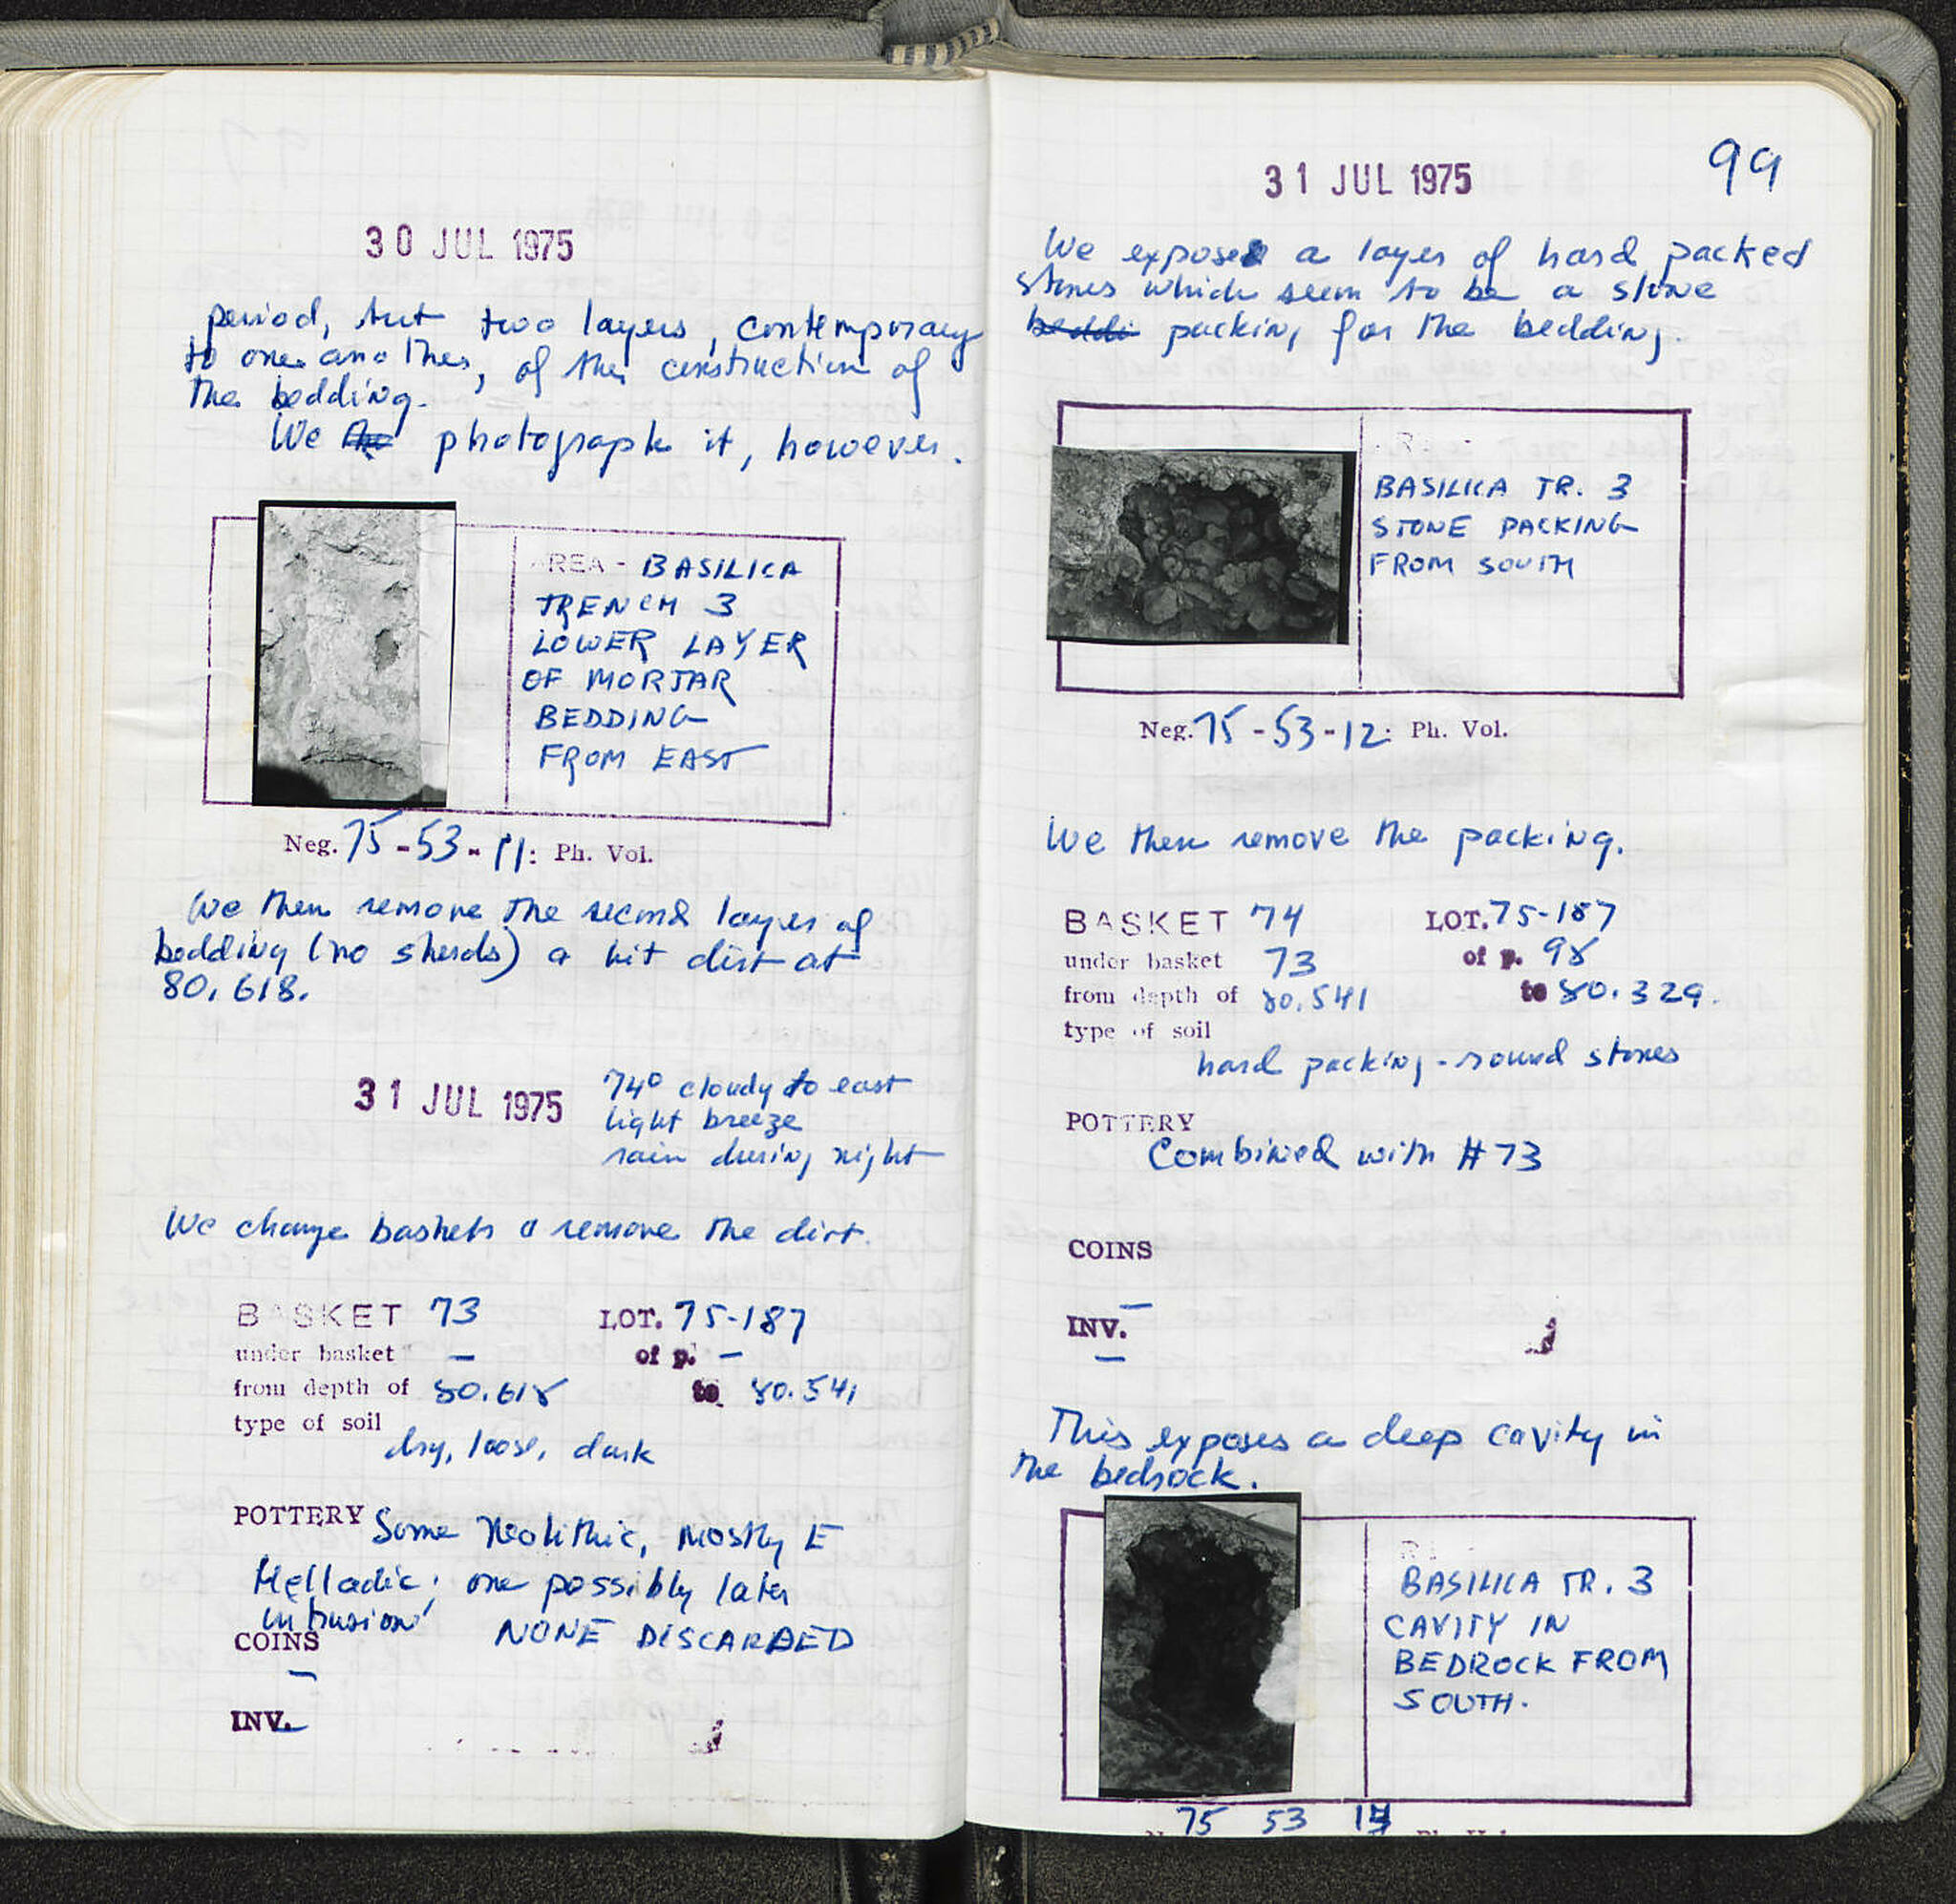 30 JUL 1975
period, but two layers, contemporary
to one another, of the construction of
the bedding.
We photograph it, however.
AREA - BASILICA
TRENCH 3
LOWER LAYER
OF MORTAR
BEDDING
FROM EAST
Neg. 75-53-11: Ph. Vol.
We then remove the second layer of
bedding (no sherds) & hit dirt at
80.618.
31 JUL 1975
74° cloudy to east
light breeze
rain during night
We change baskets & remove the dirt.
BASKET 73 LOT. 75-187
under basket — of p. —
from depth of 80.618 to 80.541
type of soil
dry, loose, dark
POTTERY Some Neolithic, mostly E
Helladic; one possibly later
intrusion
COINS NONE DISCARDED
—
INV. —
31 JUL 1975
99
We exposed a layer of hard packed
stones which seem to be a stone
beddi packing for the bedding.
BASILICA TR. 3
STONE PACKING
FROM SOUTH
Neg. 75-53-12: Ph. Vol.
We then remove the packing.
BASKET 74 LOT. 75-187
under basket 73 of p. 98
from depth of 80.541 to 80.329.
type of soil
hard packing - round stones
POTTERY
Combined with #73
COINS
—
INV.
—
This exposes a deep cavity in
the bedrock.
BASILICA TR. 3
CAVITY IN
BEDROCK FROM
SOUTH.
75 53